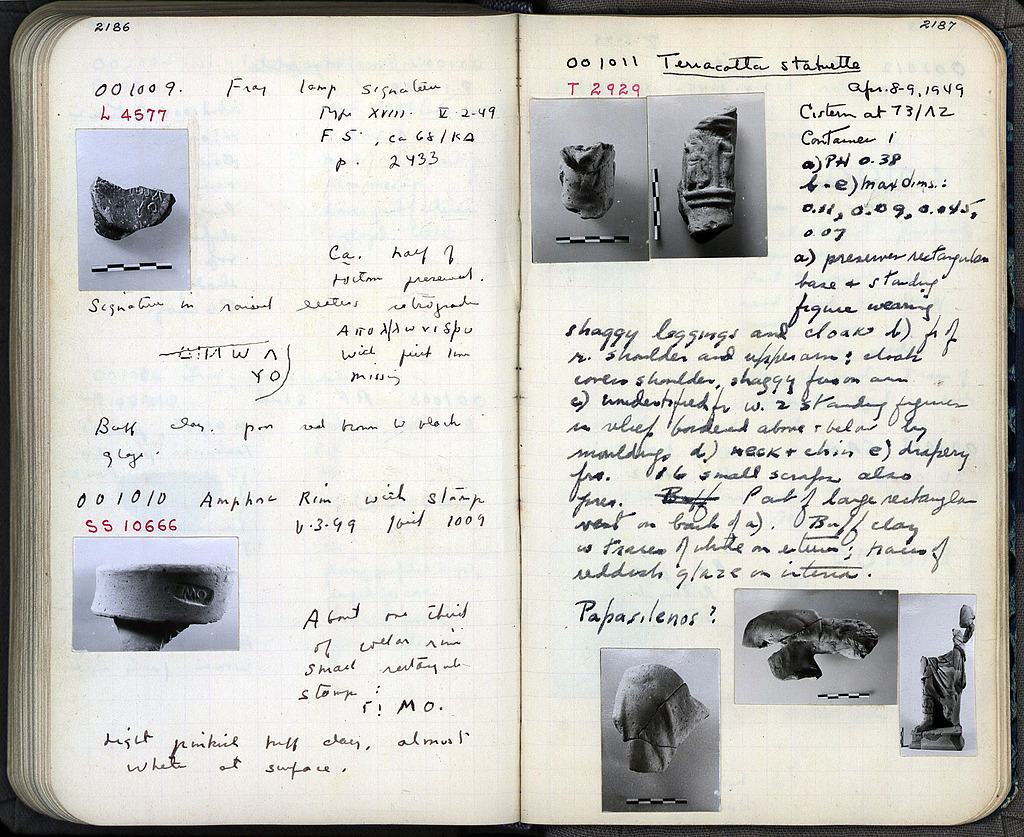 2186
OO 1009. Frag lamp signature
L 4577
Type XVIII. V-2-49
F.S., ca 68/ΚΔ
p. 2433
Ca. half of
bottom preserved.
Signature in raised letters retrograde
Απολλωνιδου
with first
missing
ΥΟ
Buff clay. red brown to black
glaze.
OO 1010 Amphora Rim with stamp
SS 10666
V-3-49 Joins 1009
About one third
of collar rim
small rectangular
stamp:
MO.
Light pinkish buff clay, almost
white at surface.
MO
2187
OO 1011 Terracotta statuette
T 2929
Apr. 8-9, 1949
Cistern at 73/ΛΖ
Container 1
a) PH 0.38
b-e) max dims.:
0.11, 0.09, 0.045,
0.07
a) preserves rectangular
base + standing
figure wearing
shaggy leggings and cloak b) fr of
r. shoulder and upper arm; cloak
covers shoulder, shaggy fur on arm
c) unidentified fr w. 2 standing figures
in relief bordered above + below by
mouldings d) neck + chin e) drapery
frs. 16 small scraps also
pres. Buff Part of large rectangular
vent on back of a). Buff clay
w traces of white on exterior; traces of
reddish glaze on interior.
Papasilenos?